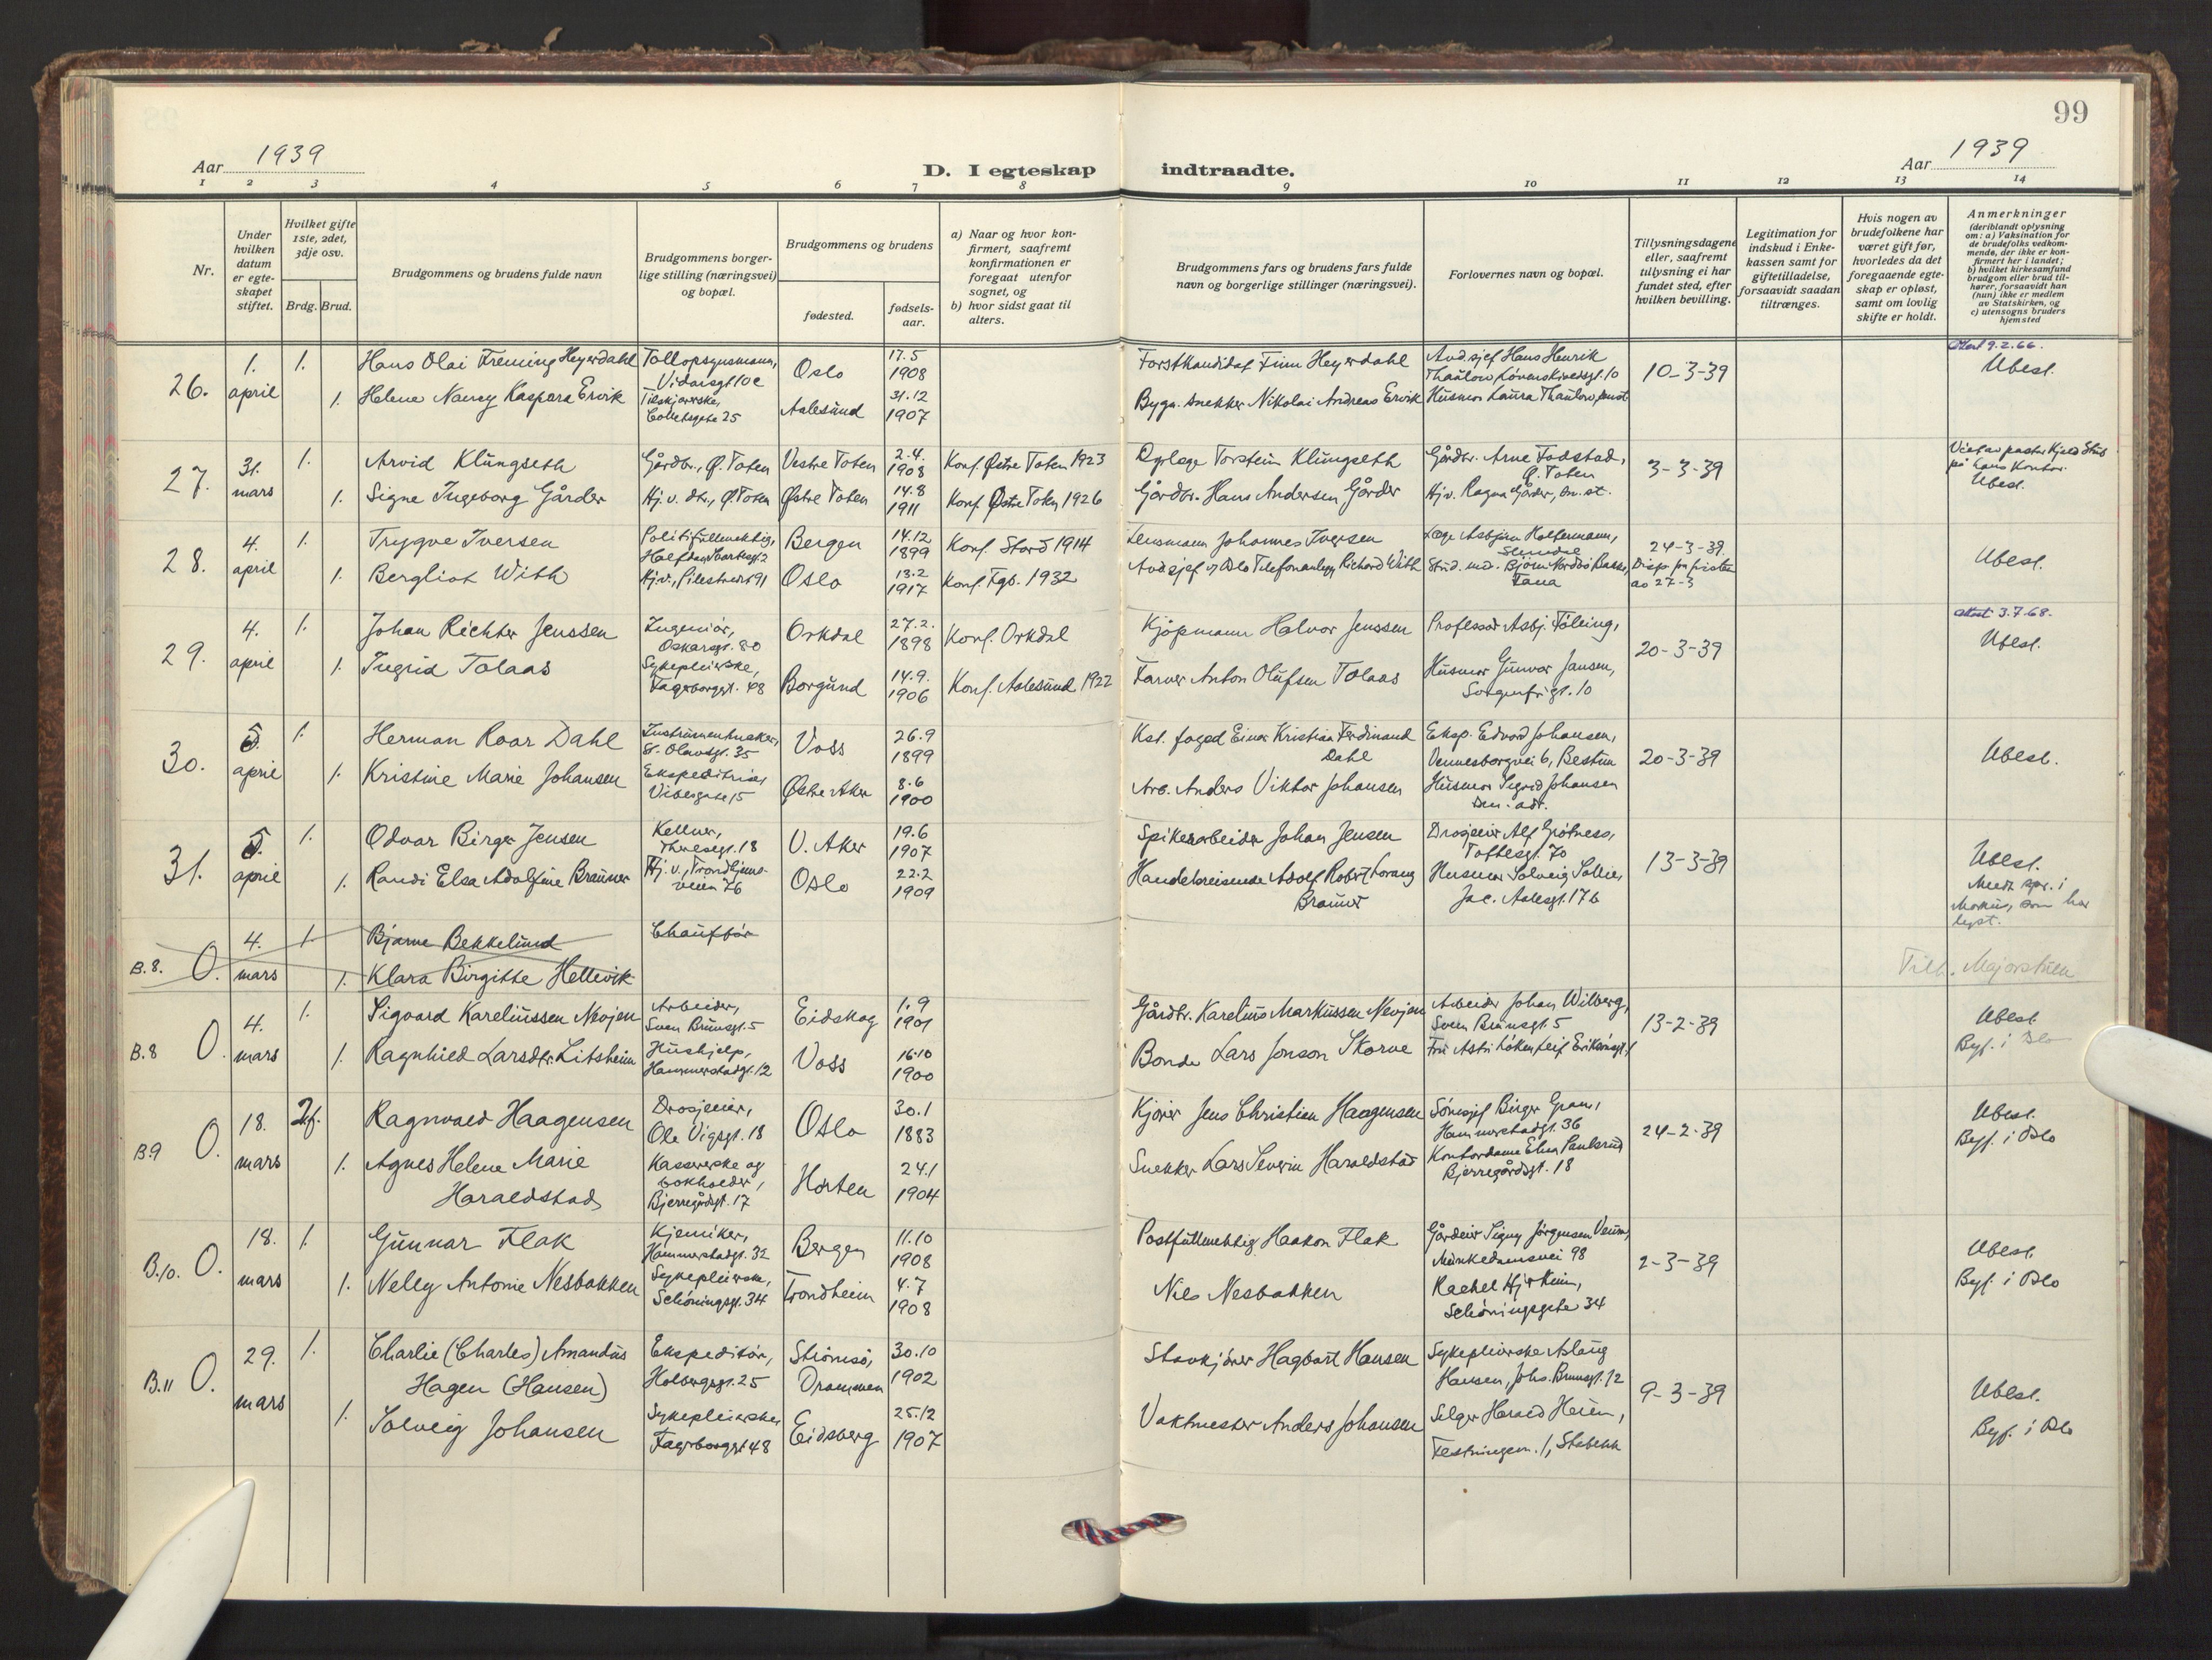 99
Aar 1939
D. I egteskap indtraadte.
Aar 1939
1 2 3 4 5 6 7 8 9 10 11 12 13 14
Nr.
Under hvilken datum er egteskapet stiftet.
Hvilket gifte 1ste, 2det, 3dje osv.
Brdg. Brud.
Brudgommens og brudens fulde navn
Brudgommens borgerlige stilling (næringsvei) og bopæl.
Brudgommens og brudens
fødested.
fødselsaar.
a) Naar og hvor konfirmert, saafremt konfirmationen er foregaat utenfor sognet, og
b) hvor sidst gaat til alters.
Brudgommens fars og brudens fars fulde navn og borgerlige stillinger (næringsvei).
Forlovernes navn og bopæl.
Tillysningsdagene eller, saafremt tillysning ei har fundet sted, efter hvilken bevilling.
Legitimation for indskud i Enkekassen samt for giftetilladelse, forsaavidt saadan tiltrænges.
Hvis nogen av brudefolkene har været gift før, hvorledes da det foregaaende egteskap er opløst, samt om lovlig skifte er holdt.
Anmerkninger
(deriblandt oplysning om: a) Vaksination for de brudefolks vedkommende, der ikke er konfirmert her i landet;
b) hvilket kirkesamfund brudgom eller brud tilhører, forsaavidt han (hun) ikke er medlem av Statskirken, og
c) utensogns bruders hjemsted
26. 1. april 1. Hans Olai Fleming Heyerdahl
Vidarsgt 10c
Oslo
17.5 1908
Forstkandidat Finn Heyerdahl
Avd.sjef Hans Henrik Thaulow, Løvenskioldsgt. 10
10-3-39
Attest 9.2.66.
Ubesl.
1. Helene Nancy Kaspara Ervik
Colletsgate 25
Aalesund
31.12 1907
Bygn.snekker Nikolai Andreas Ervik
Husmor Laura Thaulow,
27. 31. mars 1. Arvid Klungseth
Gårdbr., Ø. Toten
Vestre Toten
2.4. 1908
Konf. Østre Toten 1923
Torstein Klungseth
Gårdbr. Arne Fodstad, Ø. Toten
3-3-39
på hans kontor.
Ubesl.
1. Signe Ingeborg Gårder
Hj. v. dtr., Ø. Toten
Østre Toten
14.8 1911
Konf. Østre Toten 1926
Gårdbr. Hans Andersen Gårder
Hjv. Ragna Gårder, sm. st.
28. 4. april 1. Trygve Iversen
Politifullmektig,
Bergen
14.12 1899
Konf. Stord 1914
Lensmann Johannes Iversen
Læge Asbjørn Holtermann,
24-3-39.
Ubesl.
1. Bergliot With
Hj.v., Pilestredet 91
Oslo
13.2 1917
Konf. Fgb. 1932
Avd.sjef v/ Oslo Telefonanlegg Richard With
Fana
av 27-3
29. 4. april 1. Johan Richter Jenssen
Ingeniør, Oskarsgt. 80
Orkdal
27.2. 1898
Konf. Orkdal
Kjøpmann Halvor Jenssen
Professor Asbj. Følling,
20-3-39
Attest 3.7.68.
Ubesl.
1. Ingrid Tolaas
Sykepleierske, Fagerborggt. 48
Borgund
14.9. 1906
Konf. Aalesund 1922
Farver Anton Olufsen Tolaas
Husmor Gunvor Jansen, Sorgenfrigt. 10
30. 5. april 1. Herman Roar Dahl
Instrumentmaker, St. Olavsgt. 35
Voss
26.9 1899
Kst. foged Einar Kristian Ferdinand Dahl
Eksp. Edvard Johansen, Vennesborgvei 6, Bestun
20-3-39
Ubesl.
1. Kristine Marie Johansen
Ekspeditrise, Vibesgate 15
Østre Aker
8.6 1900
Arb. Anders Viktor Johansen
Husmor Sigrid Johansen
31. 5. april 1. Odvar Birger Jensen
Kellner, Theresegt. 18
V. Aker
19.6 1907
Spikerarbeider Johan Jensen
Drosjeeier Alf Grötness, Toftesgt. 70
13-3-39
Ubesl.
1. Randi Elsa Adolfine Brauner
Hj. v., Trondhjemsveien 76
Oslo
22.2 1909
Handelsreisende Adolf Robert Lorang Brauner
Husmor Solveig Sollie, Jac. Aalesgt. 17b
Markus, som har lyst.
B.8. O. 4. mars 1. Bjarne Bekkelund
Chauffør
1. Klara Birgitte Hellevik
Tilh. Majorstuen
B.8 O. 4. mars 1. Sigvard Kareliussen Nevjen
Arbeider, Sven Brunsgt. 5
Eidskog
1.9 1901
Gårdbr. Karelius Markussen Nevjen
Arbeider Johan Wilberg, Sven Brunsgt. 5
13-2-39
Ubesl.
Byf. i Oslo
1. Ragnhild Larsdtr. Litsheim
Hushjelp, Hammerstadgt. 12
Voss
16.10 1900
Bonde Lars Jonson Skorve
Fru Astri Løken, Leif Eriksonsgt. 1
B.9 O. 18. mars 2. f. Ragnvald Haagensen
Drosjeeier, Ole Vigsgt. 18
Oslo
30.1 1883
Kjører Jens Christian Haagensen
Birger Gran, Hammerstadgt. 36
24-2-39
Ubesl.
Byf. i Oslo
1. Agnes Helene Marie Haraldstad
Kassererske og bokholder, Bjerregårdsgt. 17
Horten
24.1 1904
Snekker Lars Severin Haraldstad
Kontordame Elna Paulsrud Bjerregårdsgt. 18
B.10. O. 18. mars 1. Gunnar Flak
Kjemiker, Hammerstadgt. 32
Bergen
11.10 1908
Postfullmektig Haakon Flak
Gårdeier Signy Jørgensen Veum, Munkedamsvei 98
2-3-39
Ubesl.
Byf. i Oslo
1. Nelly Antonie Nesbakken
Sykepleierske, Schöningsgt. 34
Trondheim
4.7 1908
Nils Nesbakken
Rachel Schöningsgate 34
B.11 O. 29. mars 1. Charlie (Charles) Amandus Hagen (Hansen)
Ekspeditør, Holbergsgt. 25
Strømsø, Drammen
30.10 1902
Hagbart Hansen
Sykepleierske Aslaug Hansen, Johs. Brunsgt. 12
9-3-39
Ubesl.
Byf. i Oslo
1. Solveig Johansen
Sykepleierske, Fagerborggt 48
Eidsberg
25.12 1907
Vaktmester Anders Johansen
Selger Harald Heien, Festningsv. 1, Stabekk